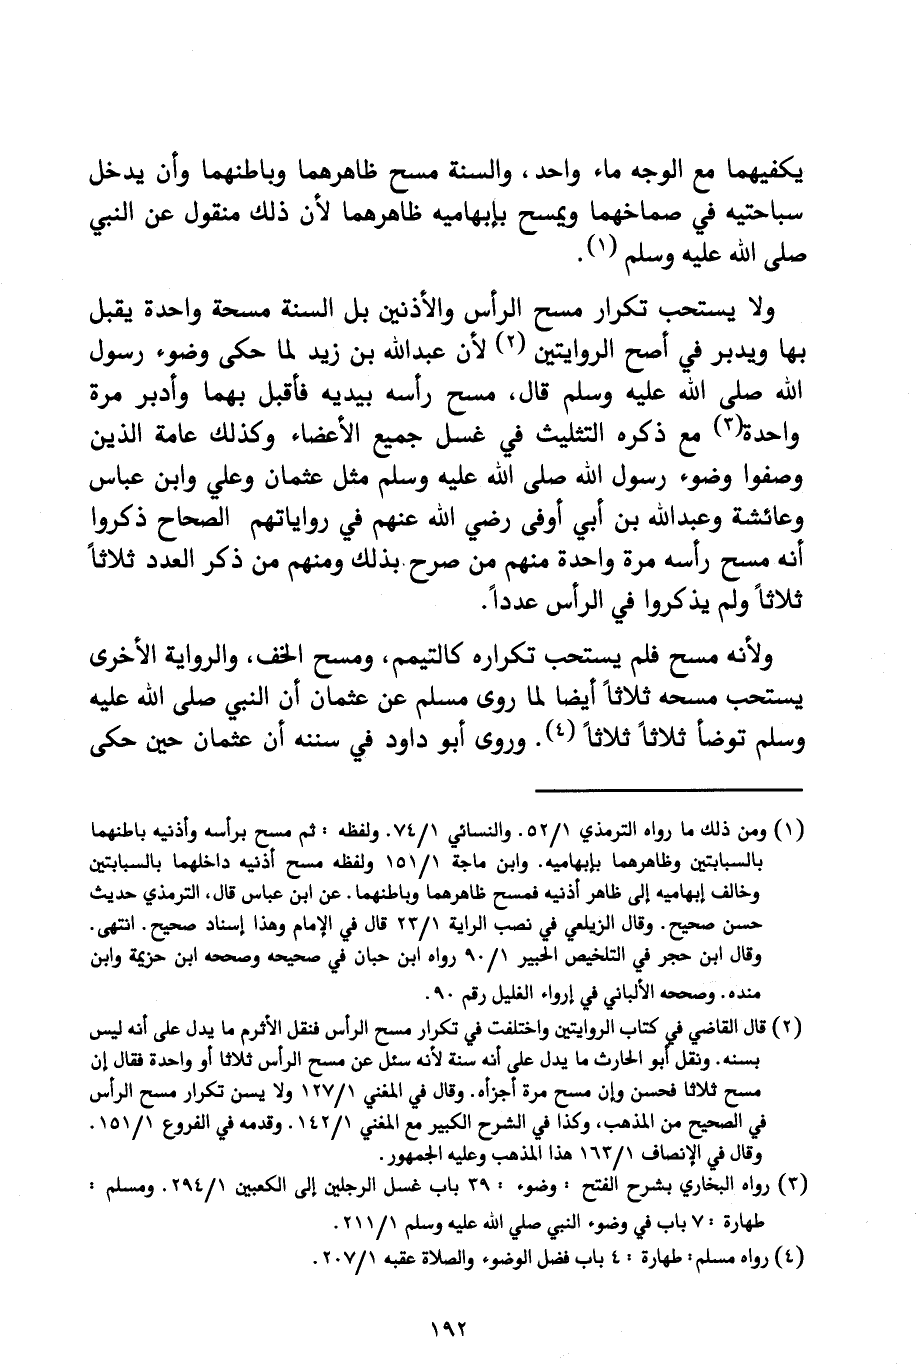 يكفيهما مع الوجه ماء واحد، والسنة مسح ظاهرهما وباطنهما وأن يدخل
سباحتيه في صماخهما ويمسح بإبهاميه ظاهرهما لأن ذلك منقول عن النبي
صلى الله عليه وسلم (١).
ولا يستحب تكرار مسح الرأس والأذنين بل السنة مسحة واحدة يقبل
بها ويدبر في أصح الروايتين (٢) لأن عبدالله بن زيد لما حكى وضوء رسول
الله صلى الله عليه وسلم قال، مسح رأسه بيديه فأقبل بهما وأدبر مرة
واحدة(٣) مع ذكره التثليث في غسل جميع الأعضاء وكذلك عامة الذين
وصفوا وضوء رسول الله صلى الله عليه وسلم مثل عثمان وعلي وابن عباس
وعائشة وعبدالله بن أبي أوفى رضي الله عنهم في رواياتهم الصحاح ذكروا
أنه مسح رأسه مرة واحدة منهم من صرح بذلك ومنهم من ذكر العدد ثلاثاً
ثلاثاً ولم يذكروا في الرأس عدداً.
ولأنه مسح فلم يستحب تكراره كالتيمم، ومسح الخف، والرواية الأخرى
يستحب مسحه ثلاثاً أيضا لما روى مسلم عن عثمان أن النبي صلى الله عليه
وسلم توضأ ثلاثاً ثلاثاً (٤). وروى أبو داود في سننه أن عثمان حين حكى
(١) ومن ذلك ما رواه الترمذي ٥٢/١. والنسائي ٧٤/١. ولفظه : ثم مسح برأسه وأذنيه باطنهما
بالسبابتين وظاهرهما بإبهاميه. وابن ماجة ١٥١/١ ولفظه مسح أذنيه داخلهما بالسبابتين
وخالف إبهاميه إلى ظاهر أذنيه فمسح ظاهرهما وباطنهما. عن ابن عباس قال، الترمذي حديث
حسن صحيح. وقال الزيلعي في نصب الراية ٢٣/١ قال في الإمام وهذا إسناد صحيح. انتهى.
وقال ابن حجر في التلخيص الحبير ٩٠/١ رواه ابن حبان في صحيحه وصححه ابن خزيمة وابن
منده. وصححه الألباني في إرواء الغليل رقم ٩٠.
(٢) قال القاضي في كتاب الروايتين واختلفت في تكرار مسح الرأس فنقل الأثرم ما يدل على أنه ليس
بسنه. ونقل أبو الحارث ما يدل على أنه سنة لأنه سئل عن مسح الرأس ثلاثا أو واحدة فقال إن
مسح ثلاثا فحسن وإن مسح مرة أجزأه. وقال في المغني ١٢٧/١ ولا يسن تكرار مسح الرأس
في الصحيح من المذهب، وكذا في الشرح الكبير مع المغني ١٤٢/١. وقدمه في الفروع ١٥١/١.
وقال في الإنصاف ١٦٣/١ هذا المذهب وعليه الجمهور.
(٣) رواه البخاري بشرح الفتح : وضوء : ٣٩ باب غسل الرجلين إلى الكعبين ٢٩٤/١. ومسلم :
طهارة : ٧ باب في وضوء النبي صلي الله عليه وسلم ٢١١/١.
(٤) رواه مسلم: طهارة : ٤ باب فضل الوضوء والصلاة عقبه ٢٠٧/١.
١٩٢